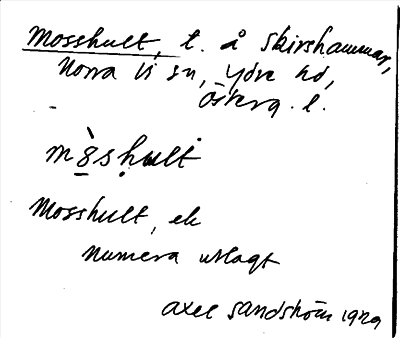 Mosshult, t. å Skirshammar,
Norra Vi sn, Ydre hd,
Österg. l.
mò̠sḥult
Mosshult, ek
numera utlagt
Axel Sandström 1929